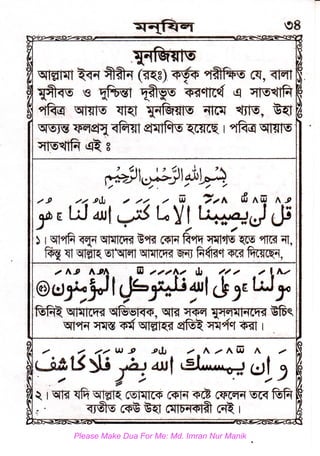 মনযিল ৩৪
মুনজিয়াত
আল্লামা ইবন সীরীন (রহঃ) কর্তৃক পরীক্ষিত যে, বালা
মুসীবত ও দুশ্চিন্তা দূরীভূত করণার্থে এ সাতখানি
পবিত্র আয়াত যাহা মুনজিয়াত নামে খ্যাত, উহা
অত্যন্ত ফলপ্রসু বলিয়া প্রমাণিত হয়েছে । পবিত্র আয়াত
সাতখানি এই ঃ
بِسْمِ اللهِ الرَّحْمٰنِ الرَّحِيْمِ
قُلْ لَّنْ يُصِيْبَنَا اِلَّا مَا كَتَبَ اللهُ لَنَا ۚ هُوَ
১ । আপনি বলুন আমাদের উপর কোন বিপদ সমাগত হতে পারে না,
কিন্তু যা আল্লাহ তা'আলা আমাদের জন্য নির্ধারণ করে দিয়েছেন,
مَوْلٰىنَا ۚ وَعَلَى اللهِ فَلْيَتَوَكَّلِ الْمُؤْمِنُوْنَ ﴿۵۱﴾
তিনিই আমাদের অভিভাবক, আর সকল মুসলমানদের উচিৎ
আপন সমস্ত কর্ম আল্লাহর প্রতিই সমর্পণ করা ।
وَ اِنْ يَّمْسَسْكَ اللهُ بِضُرٍّ فَلَا كَاشِفَ
২ । আর যদি আল্লাহ তোমাকে কোন কষ্টে ফেলেন তবে তিনি
ব্যতীত কেউ উহা মোচনকারী নেই ।
Please Make Dua For Me: Md. Imran Nur Manik